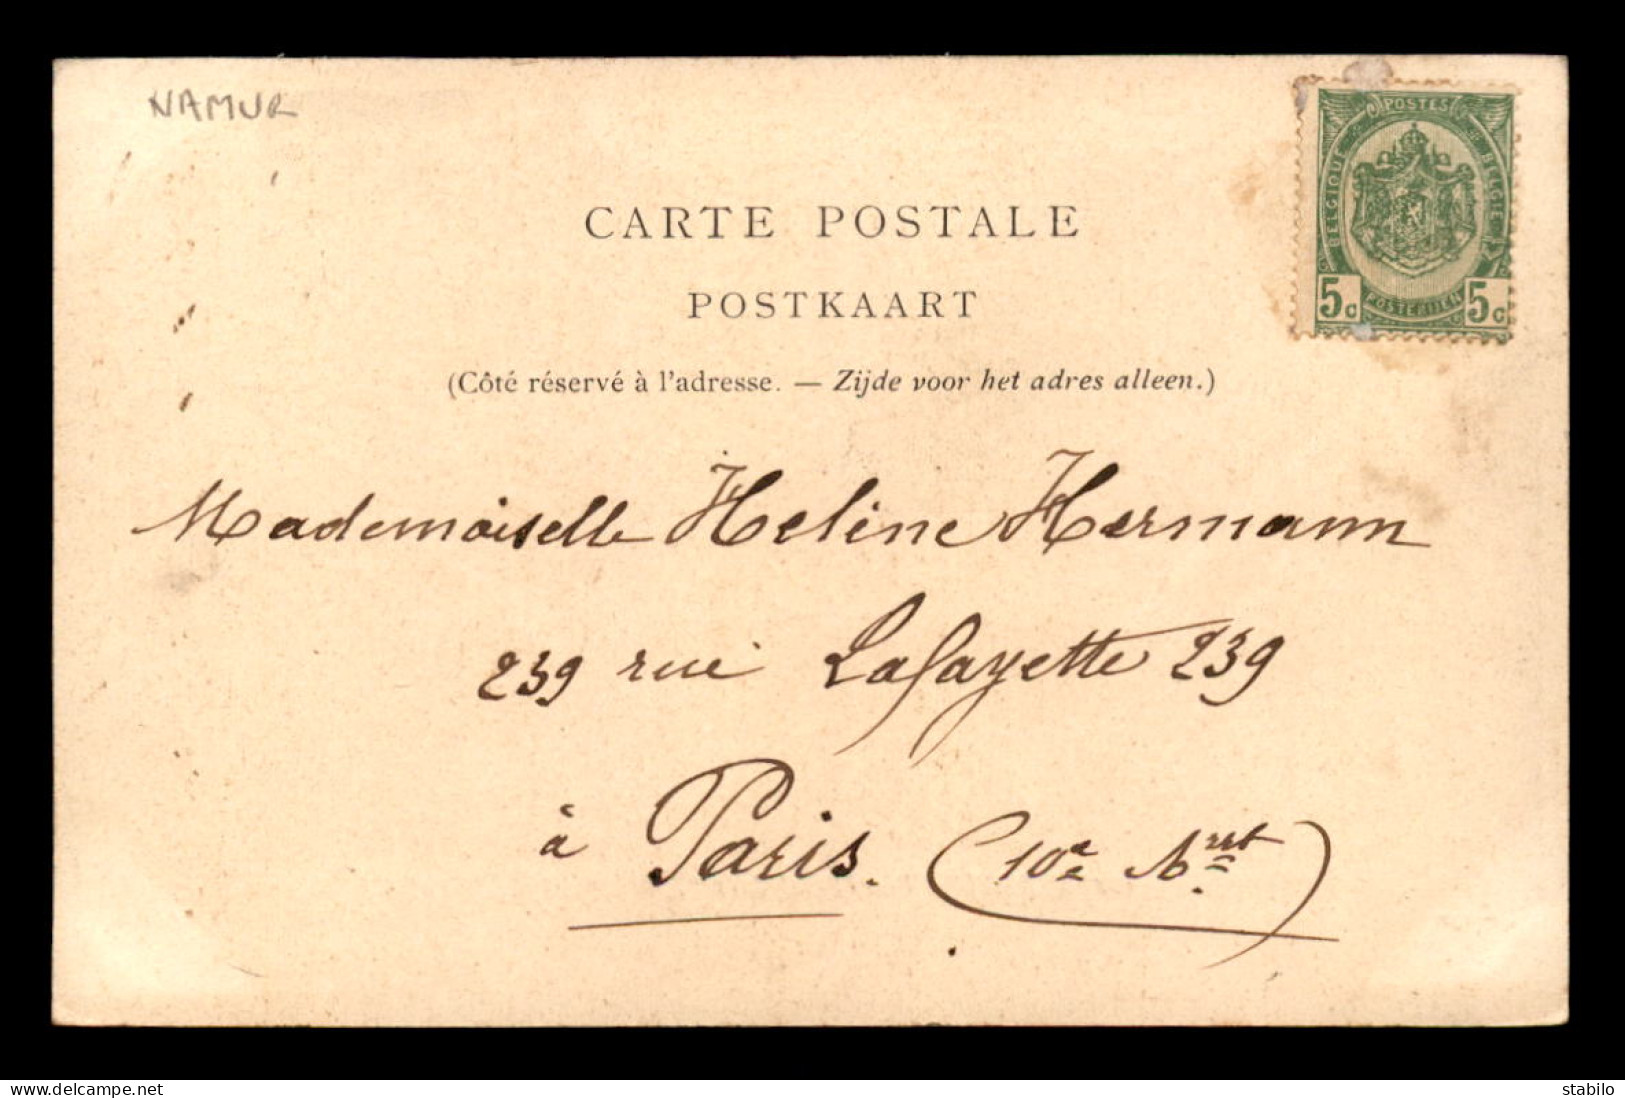 NAMUR
POSTES
BELGIQUE
BELGIE
5c
POSTERIJEN
5c
CARTE POSTALE
POSTKAART
(Côté réservé à l'adresse. — Zijde voor het adres alleen.)
Mademoiselle Heline Hermann
239 rue Lafayette 239
à Paris. (10e Arrt)
delcampe.net
stabilo